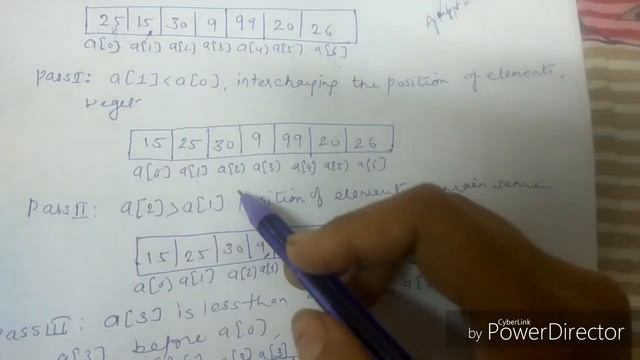 25 15 30 9 99 20 26
a[0] a[1] a[2] a[3] a[4] a[5] a[6]
Pass I: a[1] < a[0], interchanging the position of elements,
we get
15 25 30 9 99 20 26
a[0] a[1] a[2] a[3] a[4] a[5] a[6]
Pass II: a[2] > a[1] position of elements remain same
15 25 30 9
a[0] a[1] a[2] a[3]
Pass III: a[3] is less than
before a[0],
a[3]
CyberLink
by PowerDirector